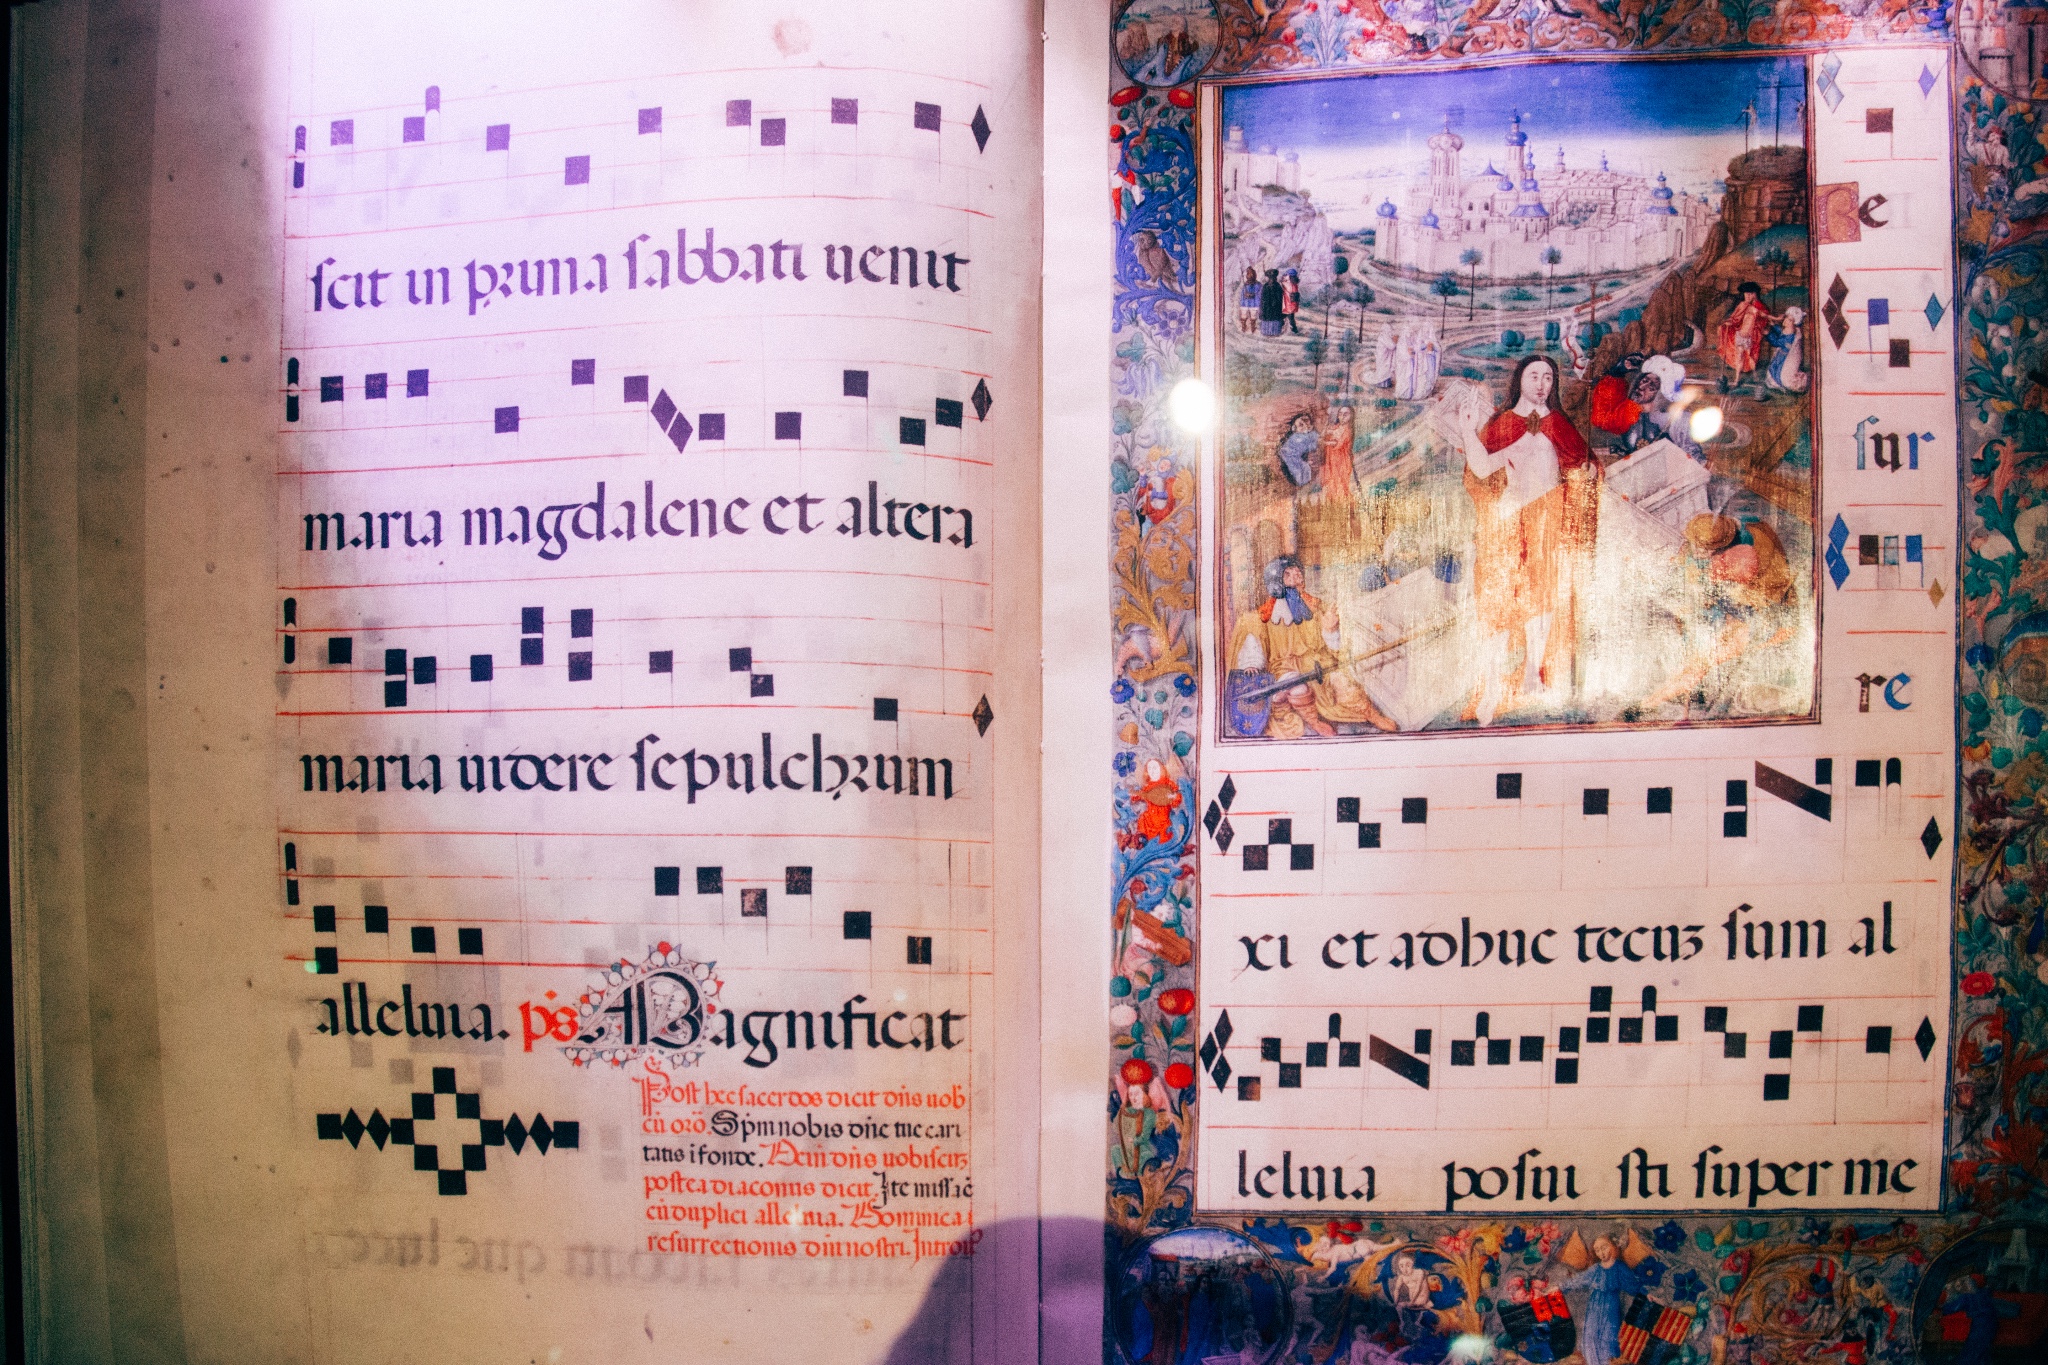 scit in prima sabbati uenit
maria magdalene et altera
maria uidere sepulchrum
alleluia. ps Magnificat
Post hec sacerdos dicit dñs uob
cū orõ. Spm nobis dñe tue cari
tatis ifonde. Dein dñs uobiscuz
postea diaconus dicit. Ite missa ē
cū duplici alleluia. Dominica i
resurrectionis dñi nostri. Introit
Re
sur
re
xi et adhuc tecuz sum al
leluia posui sti super me